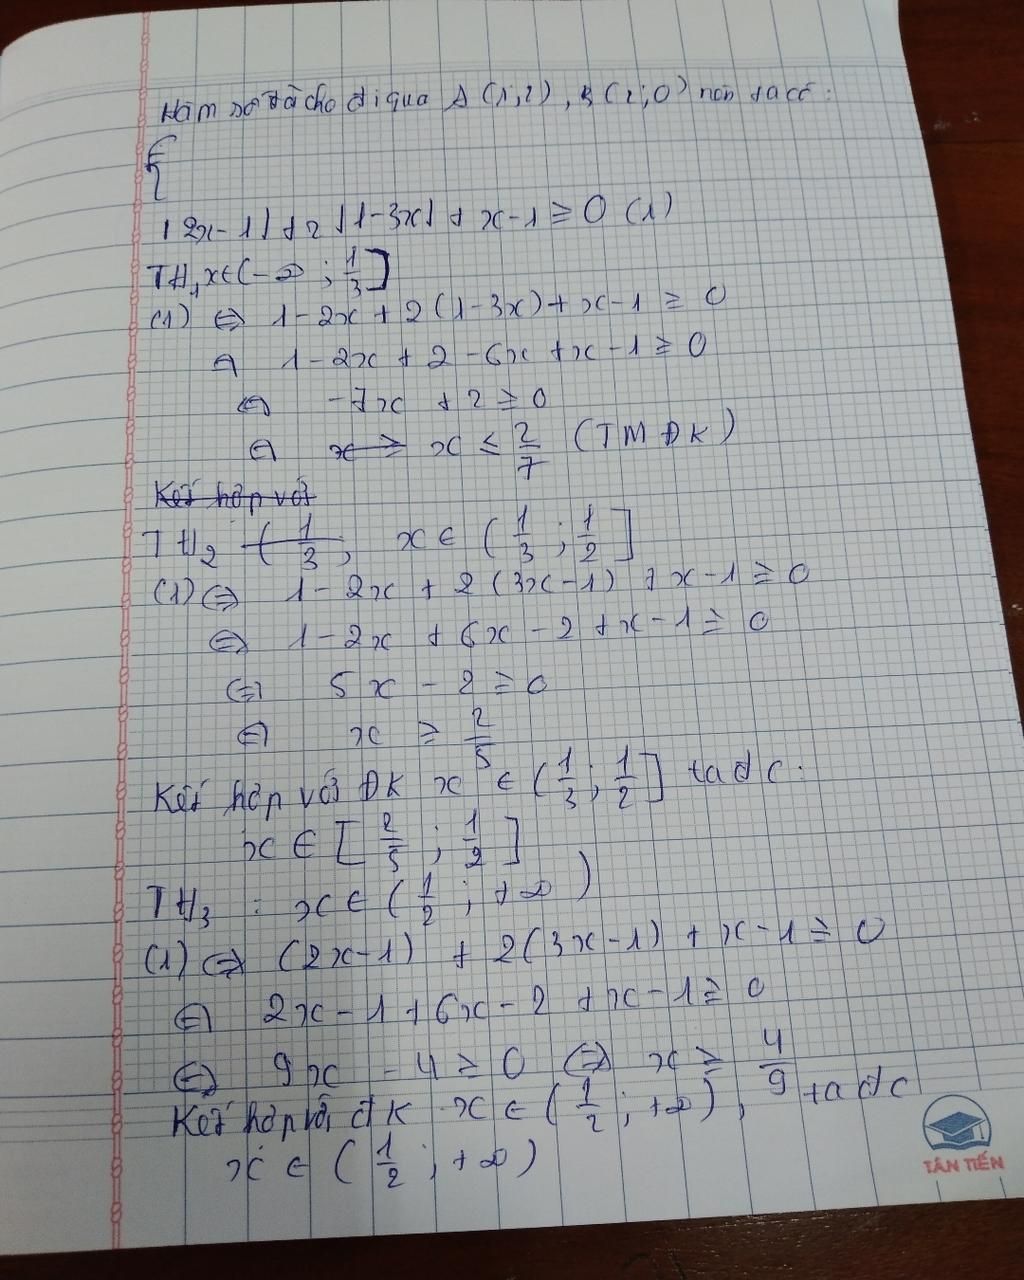 Hàm số đã cho đi qua A (1;2), B (2;0) nên ta có:
{
|2x-1| + 2|1-3x| + x-1 ≥ 0 (1)
TH1 x∈(-∞ ; 1/3]
(1) ⇔ 1-2x + 2(1-3x) + x-1 ≥ 0
⇔ 1-2x + 2 - 6x + x-1 ≥ 0
⇔ -7x + 2 ≥ 0
⇔ x ≥ x ≤ 2/7 (TMĐK)
Kết hợp với
TH2 (1/3; x ∈ (1/3 ; 1/2]
(1) ⇔ 1-2x + 2(3x-1) + x-1 ≥ 0
⇔ 1-2x + 6x - 2 + x-1 ≥ 0
⇔ 5x - 2 ≥ 0
⇔ x ≥ 2/5
Kết hợp với ĐK x ∈ (1/3 ; 1/2] ta đc:
x ∈ [2/5 ; 1/2]
TH3 : x ∈ (1/2 ; +∞)
(1) ⇔ (2x-1) + 2(3x-1) + x-1 ≥ 0
⇔ 2x-1 + 6x-2 + x-1 ≥ 0
⇔ 9x - 4 ≥ 0 ⇔ x ≥ 4/9
Kết hợp với đk x ∈ (1/2 ; +∞), ta đc
x ∈ (1/2 ; +∞)
TÂN TIẾN